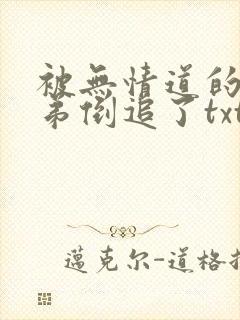 被無情道的
弟倒追了txt
邁克尔-道格拉